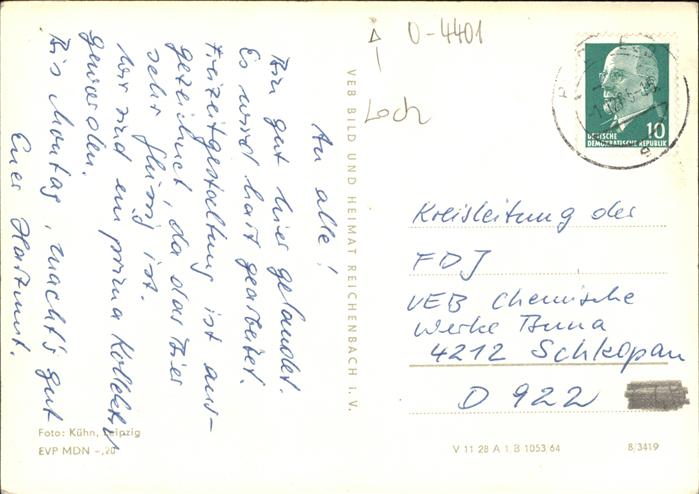 An alle!
Bin gut hier gelandet.
Es wird hart gearbeitet.
Freizeitgestaltung ist aus-
gezeichnet, da das Bier
sehr flüssig ist.
Wir sind ein prima Kollektiv
geworden.
Bis Montag, macht's gut
Euer Hartmut.
Foto: Kühn, Leipzig
EVP MDN -,20
VEB BILD UND HEIMAT REICHENBACH i. V.
U-4401
Loch
10
DEUTSCHE
DEMOKRATISCHE REPUBLIK
Kreisleitung der
FDJ
VEB Chemische
Werke Buna
4212 Schkopau
D 922
V 11 28 A 1 B 1053 64
8/3419